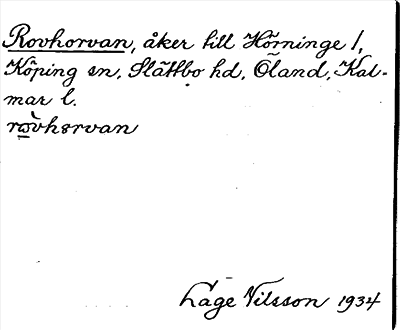 Rovhorvan, åker till Hörninge 1,
Köping sn, Slättbo hd, Öland, Kal-
mar l.
rovhorvan
Lage Nilsson 1934